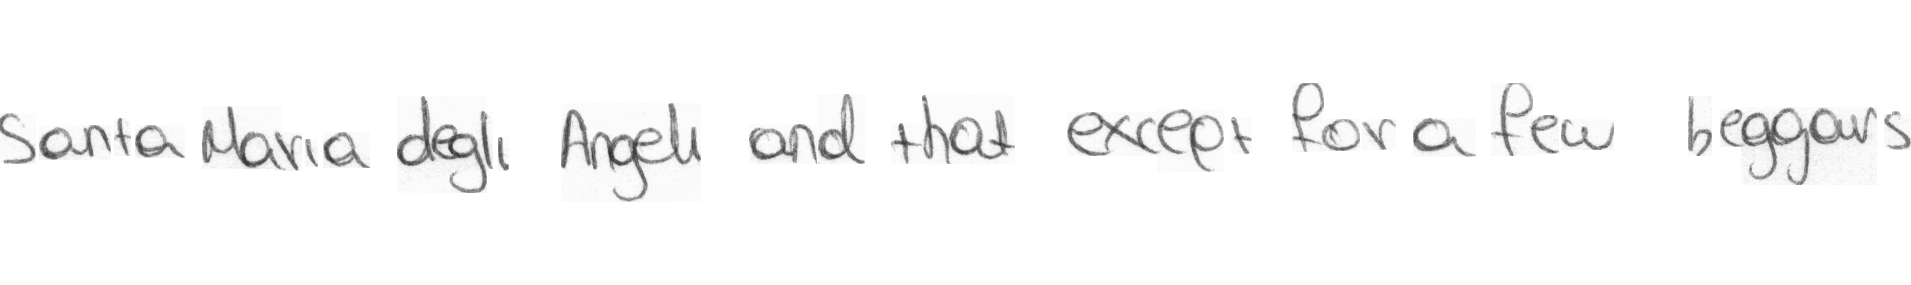 Santa Maria degli Angeli and that except for a few beggars